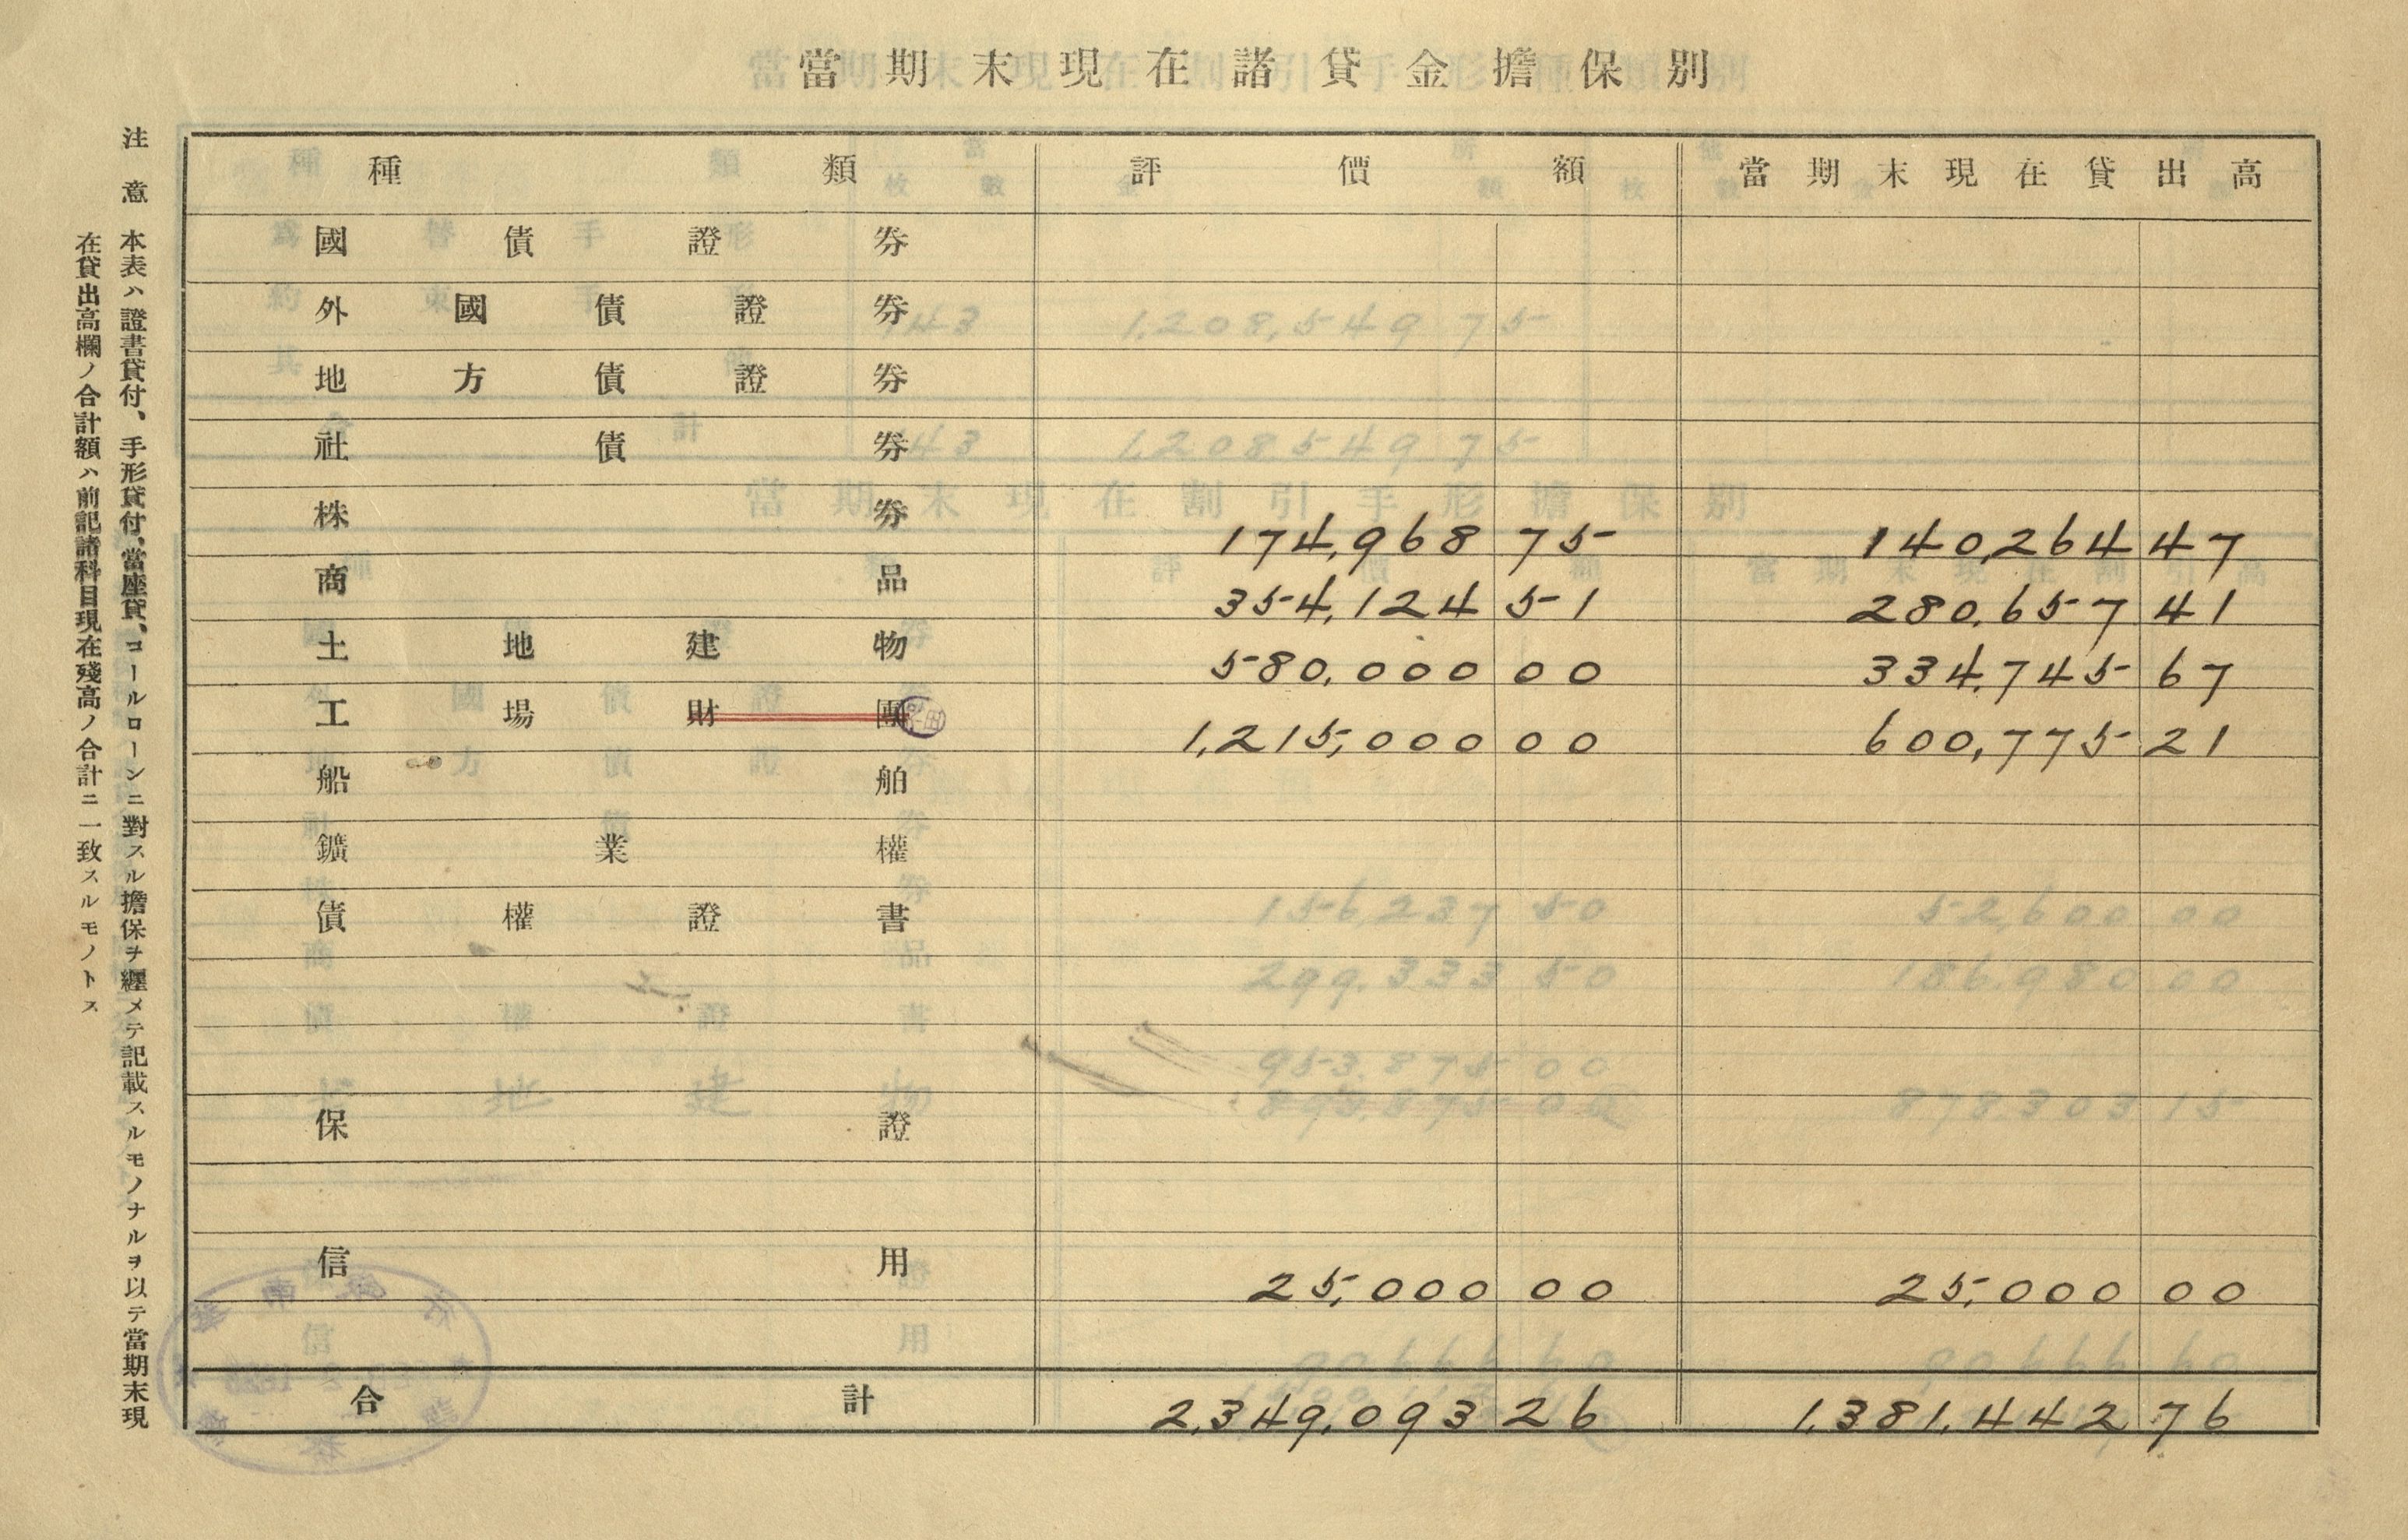 當期末現在諸貸金擔保別
種類 評價額 當期末現在貸出高
國債證券
外國債證券
地方債證券
社債券
株券 174,968 75 140,264 47
商品 354,124 51 280,657 41
土地建物 580,000 00 334,745 67
工場財團 1,215,000 00 600,775 21
船舶
鑛業權
債權證書
保證
信用 25,000 00 25,000 00
合計 2,349,093 26 1,381,442 76
注意 本表ハ證書貸付、手形貸付、當座貸、コールローンニ對スル擔保ヲ纒メテ記載スルモノナルヲ以テ當期末現
在貸出高欄ノ合計額ハ前記諸科目現在殘高ノ合計ニ一致スルモノトス